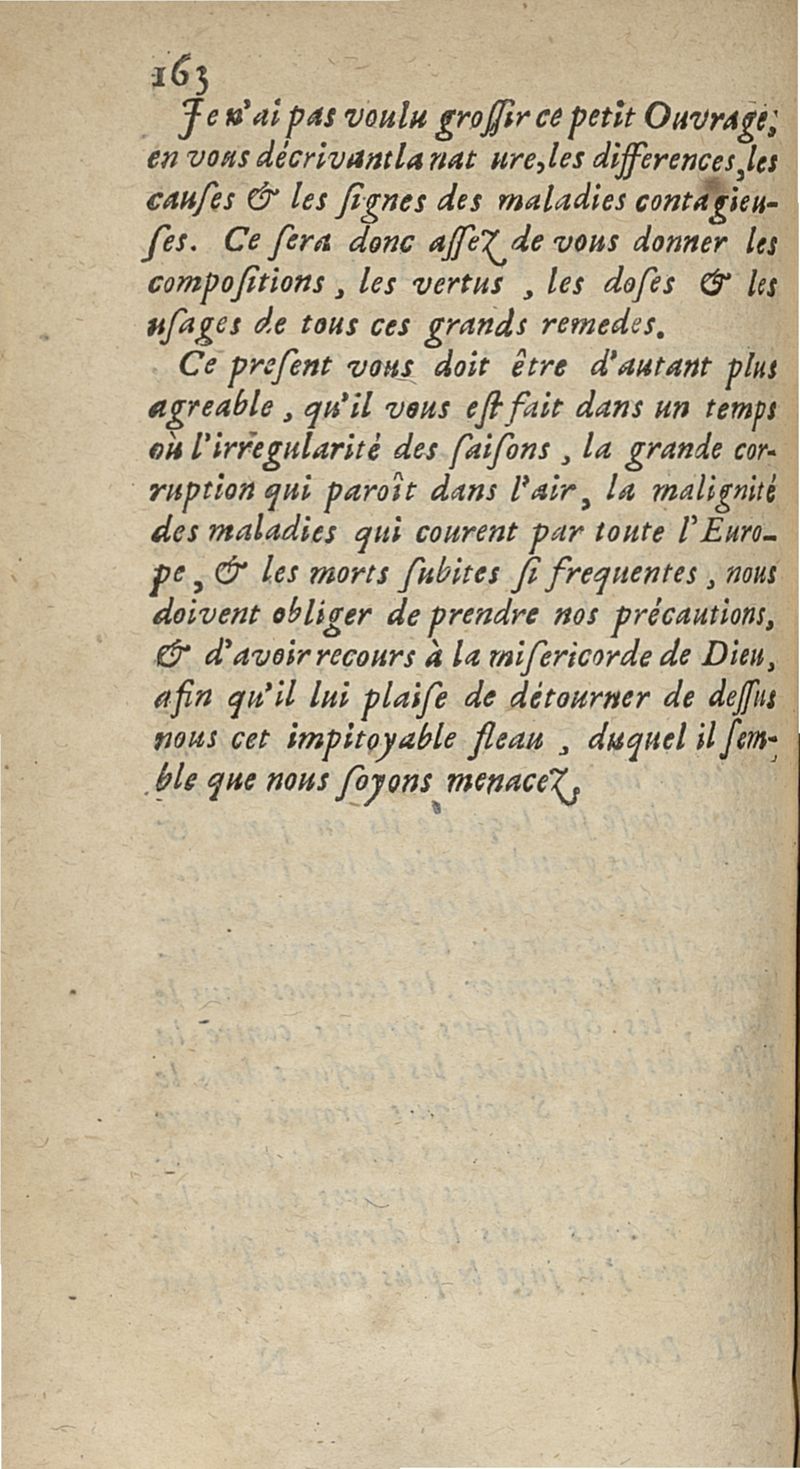 163
Je n'ai pas voulu groſſir ce petit Ouvrage,
en vous décrivant la nat ure, les differences, les
cauſes & les ſignes des maladies contagieu-
ſes. Ce ſera donc aſſez de vous donner les
compoſitions, les vertus, les doſes & les
uſages de tous ces grands remedes.
Ce preſent vous doit être d'autant plus
agreable, qu'il vous eſt fait dans un temps
où l'irregularité des ſaiſons, la grande cor-
ruption qui paroît dans l'air, la malignité
des maladies qui courent par toute l'Euro-
pe, & les morts ſubites ſi frequentes, nous
doivent obliger de prendre nos précautions,
& d'avoir recours à la miſericorde de Dieu,
afin qu'il lui plaiſe de détourner de deſſus
nous cet impitoyable fleau, duquel il ſem-
ble que nous ſoyons menacez,